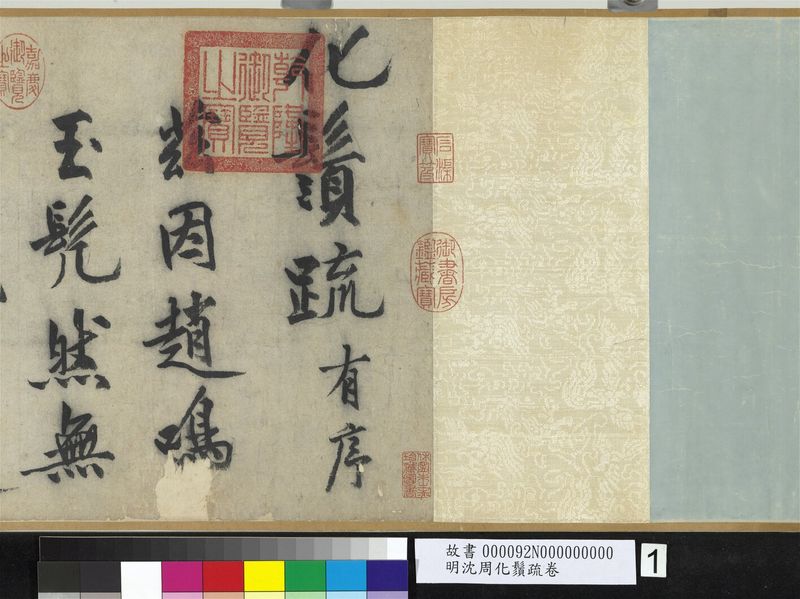 石渠寶笈
御書房鑑藏寶
化鬚疏有序
乾隆御覽之寶
茲因趙鳴
玉髠然無
嘉慶御覽之寶
故書 000092N000000000
明沈周化鬚疏卷
1